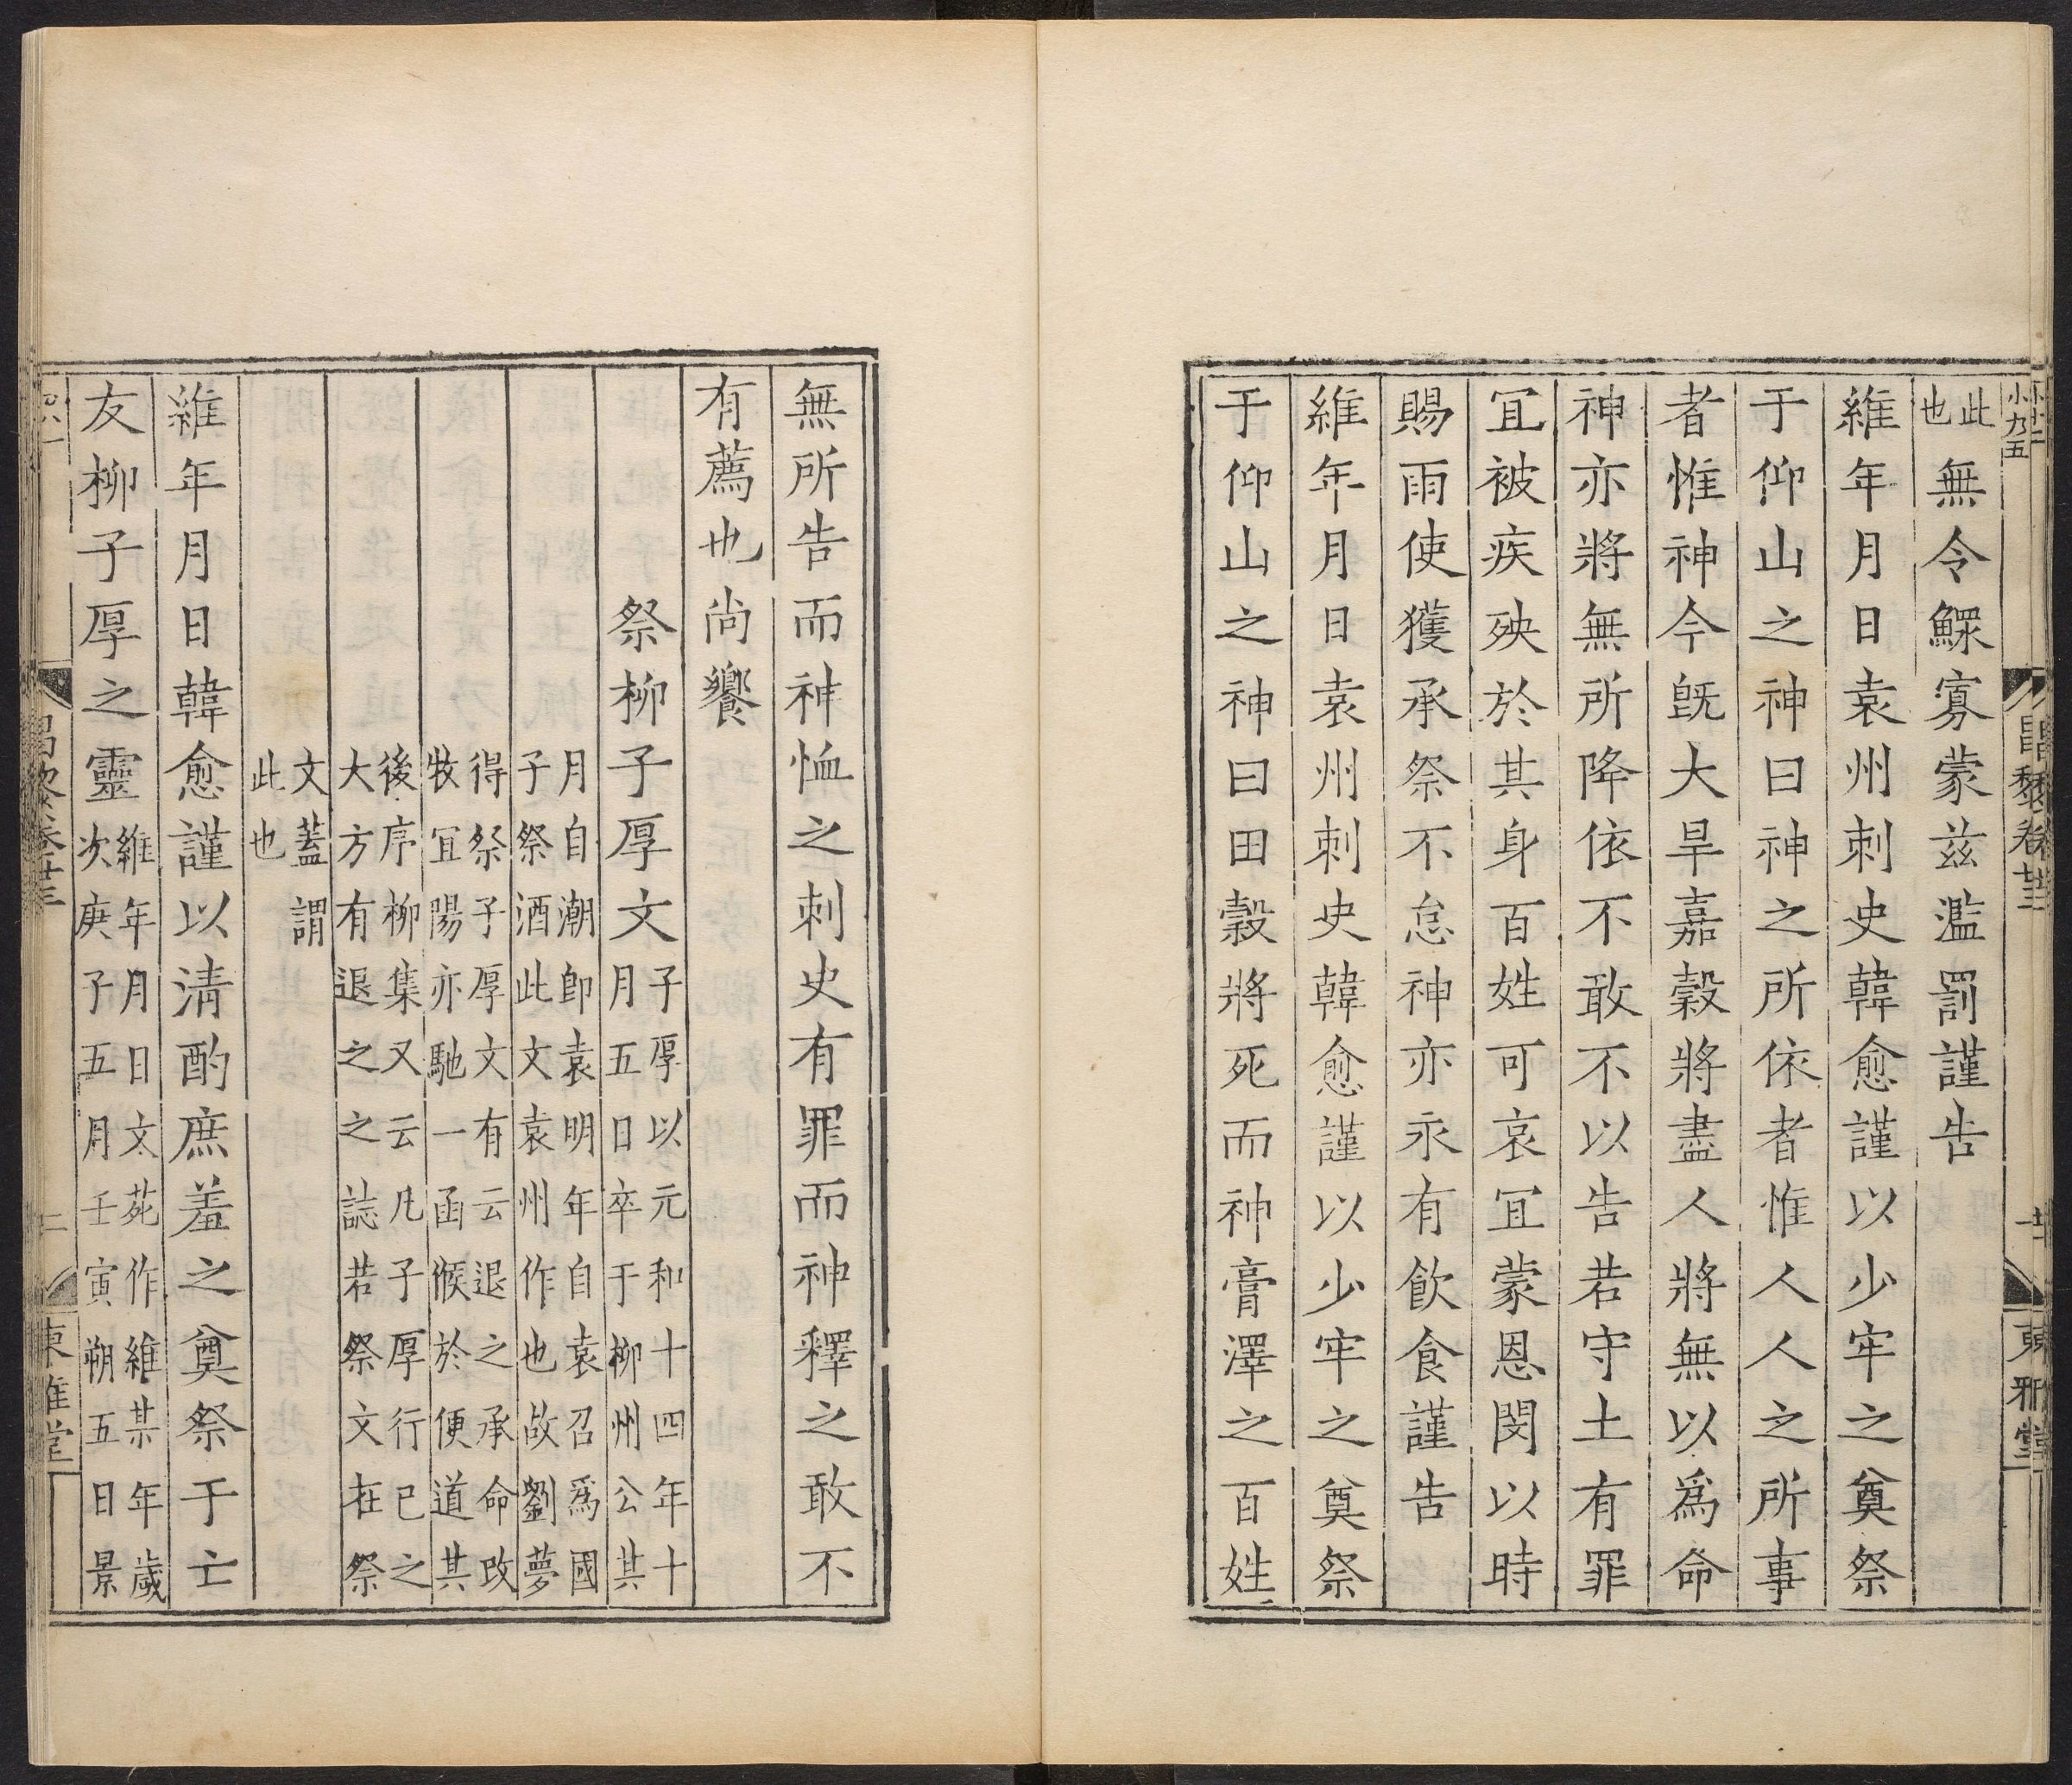 小九五
昌黎卷廿三
東雅堂
此
也
無令鰥寡蒙兹濫罰謹告
維年月日袁州刺史韓愈謹以少牢之奠祭
于仰山之神曰神之所依者惟人人之所事
者惟神今旣大旱嘉穀將盡人將無以爲命
神亦將無所降依不敢不以告若守土有罪
冝被疾殃於其身百姓可哀冝蒙恩閔以時
賜雨使獲承祭不怠神亦永有飲食謹告
維年月日袁州刺史韓愈謹以少牢之奠祭
于仰山之神曰田穀將死而神膏澤之百姓
無所告而神恤之刺史有罪而神釋之敢不
有薦也尚饗
祭柳子厚文
子厚以元和十四年十
月五日卒于柳州公其
月自潮即袁明年自袁召爲國
子祭酒此文袁州作也故劉夢
得祭子厚文有云退之承命改
牧冝陽亦馳一函候於便道其
後序柳集又云凡子厚行已之
大方有退之之誌若祭文在祭
文蓋謂
此也
維年月日韓愈謹以清酌庶羞之奠祭于亡
友柳子厚之靈
維年月日文苑作維某年歲
次庚子五月壬寅朔五日景
昌黎卷廿三
東雅堂